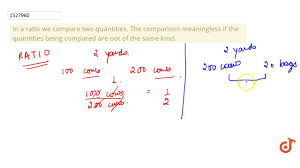 1527960
In a ratio we compare two quantities. The comparison meaningless if the
quantities being compared are not of the same kind.
RATIO
2 yards
100 cows 200 cows
100 cows / 200 cows = 1 / 2
2 yards
200 cows 20 bags